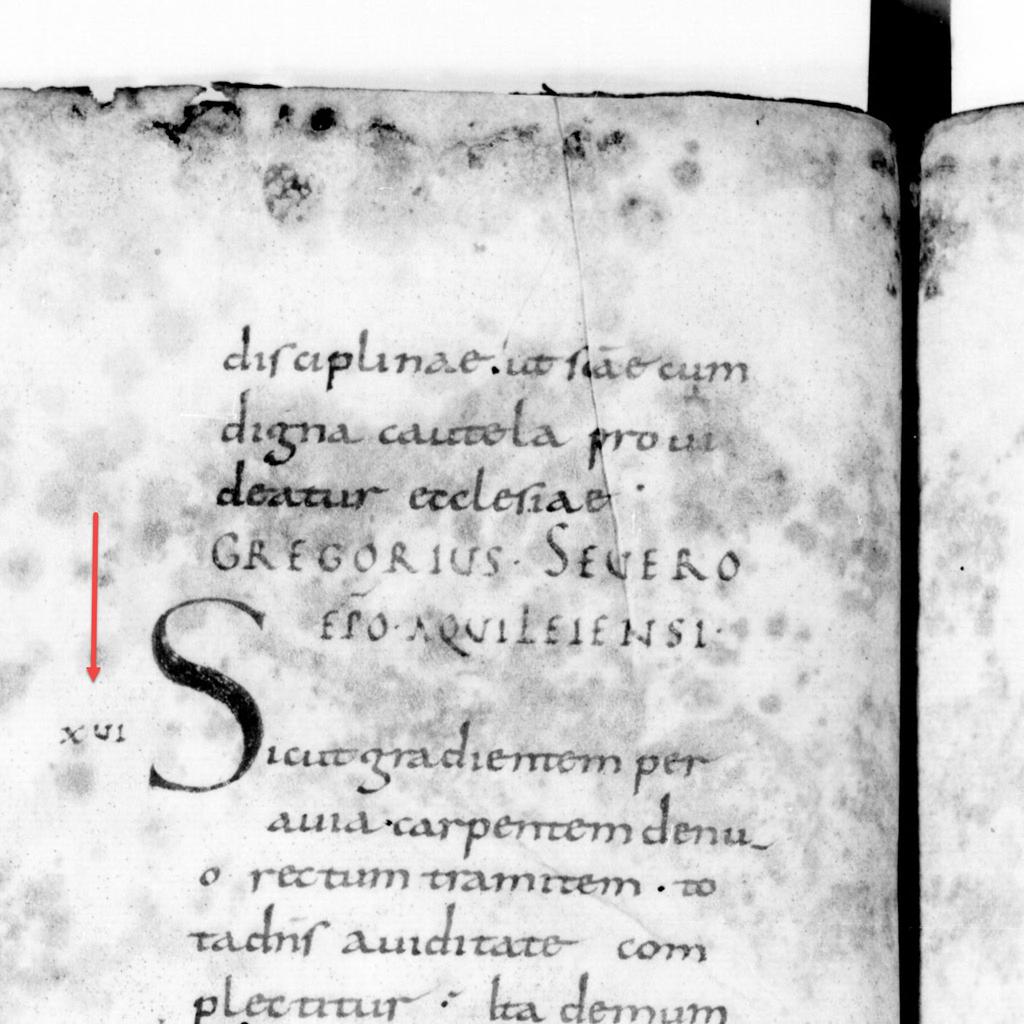 disciplinae. ut scāe cum
digna cautela proui
deatur ecclesiae·
GREGORIUS· SEVERO
EP̄O· AQUILEIENSI·
XVI
Sicut gradientem per
auia· carpentem denu
o rectum tramitem· to
ta dn̄s auiditate com
plectitur· Ita demum